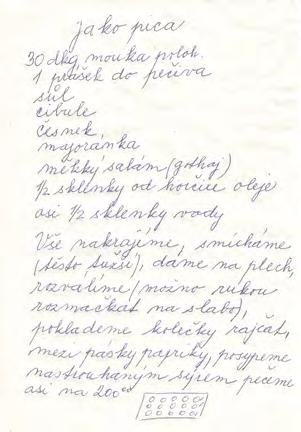 Jako pica
30 dkg mouka poloh.
1 prášek do pečiva
sůl
cibule
česnek
majoránka
měkký salám (gothaj)
1/2 sklenky od hořčice oleje
asi 1/2 sklenky vody
Vše nakrájíme, smícháme
(těsto tužší), dáme na plech,
rozválíme (možno rukou
rozmačkat na slabo),
poklademe kolečky rajčat,
mezi pásky papriky, posypeme
nastrouhaným sýrem pečeme
asi na 200°